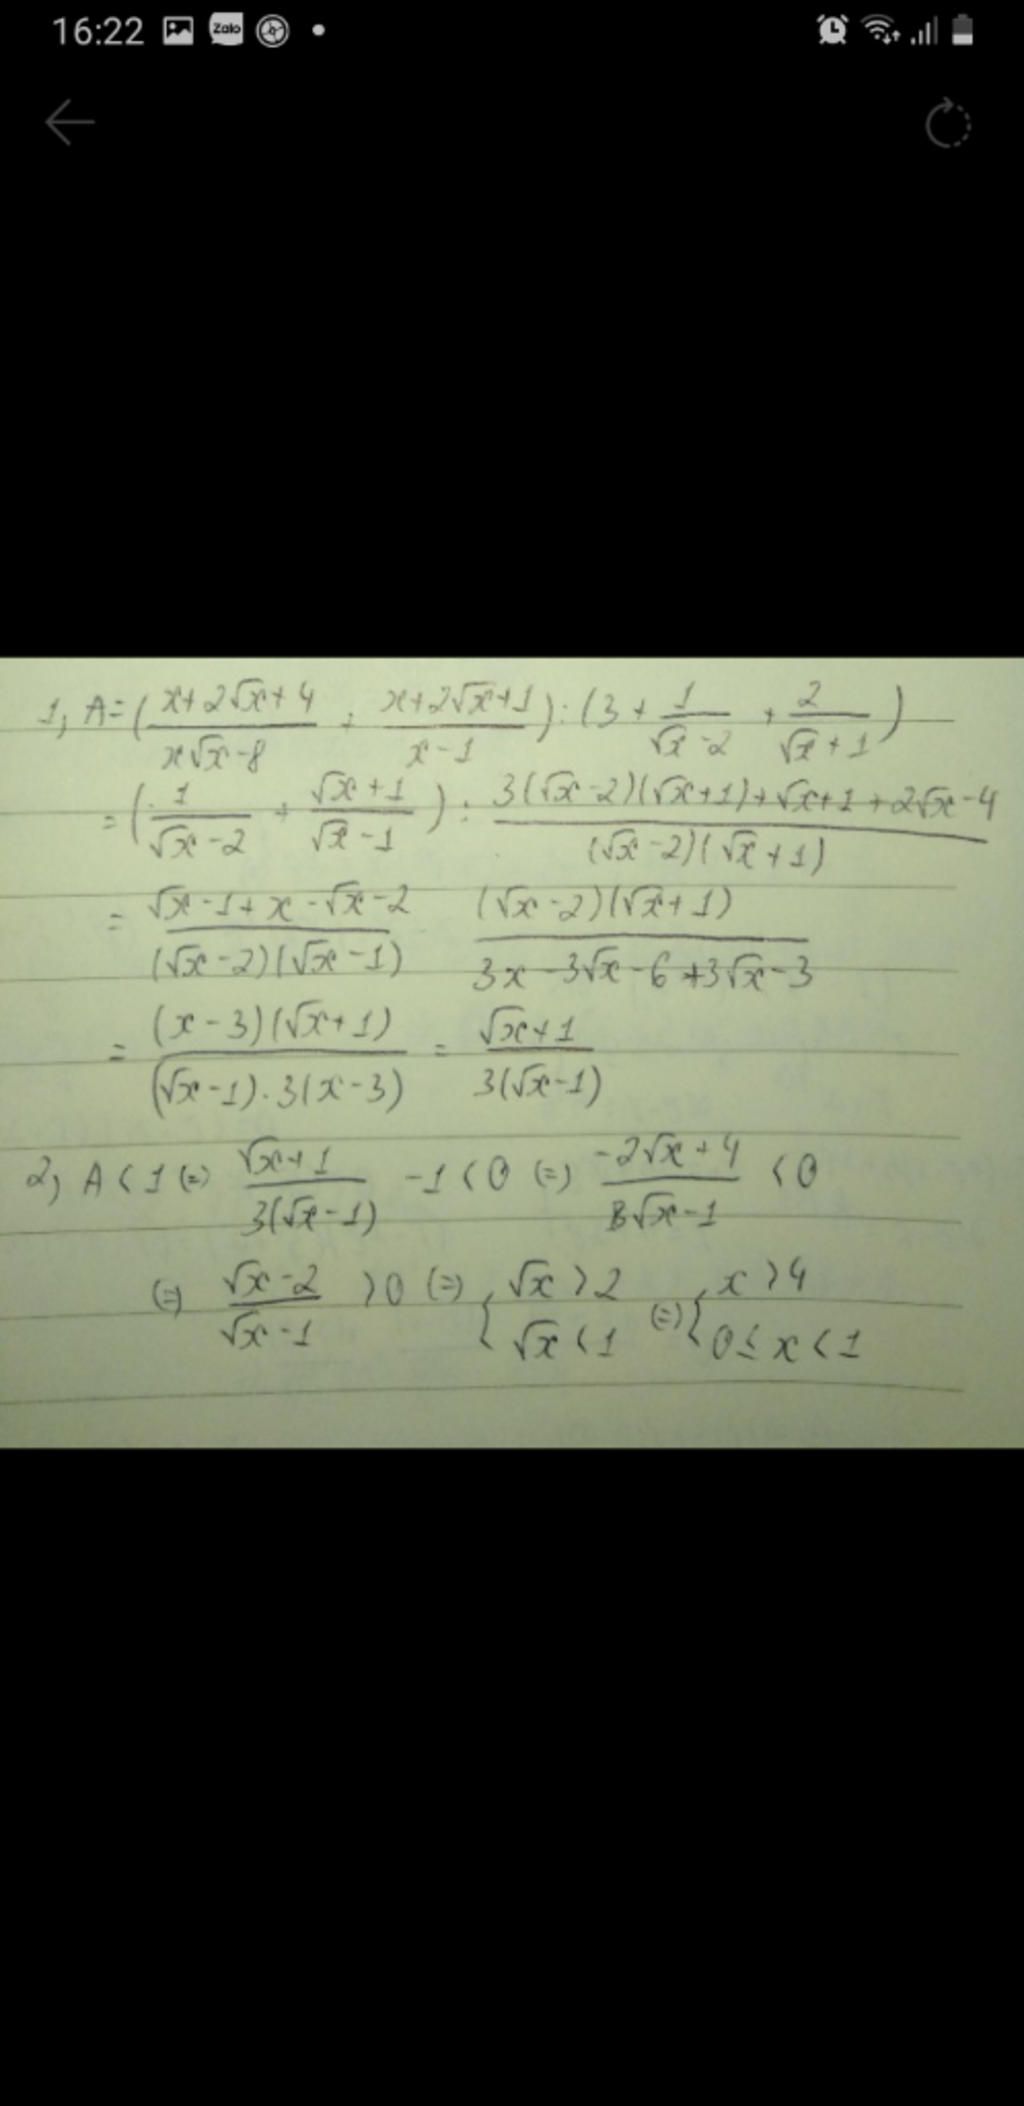 16:22 Zalo
1, A = (x+2√x+4 / x√x-8 + x+2√x+1 / x-1) : (3 + 1 / √x-2 + 2 / √x+1)
= (1 / √x-2 + √x+1 / √x-1) : 3(√x-2)(√x+1)+√x+1+2√x-4 / (√x-2)(√x+1)
= √x-1+x-√x-2 / (√x-2)(√x-1) (√x-2)(√x+1) / 3x-3√x-6+3√x-3
= (x-3)(√x+1) / (√x-1).3(x-3) = √x+1 / 3(√x-1)
2, A < 1 (=) √x+1 / 3(√x-1) -1 < 0 (=) -2√x+4 / 3√x-1 < 0
(=) √x-2 / √x-1 > 0 (=) { √x > 2 √x < 1 (=) { x > 4 0 ≤ x < 1